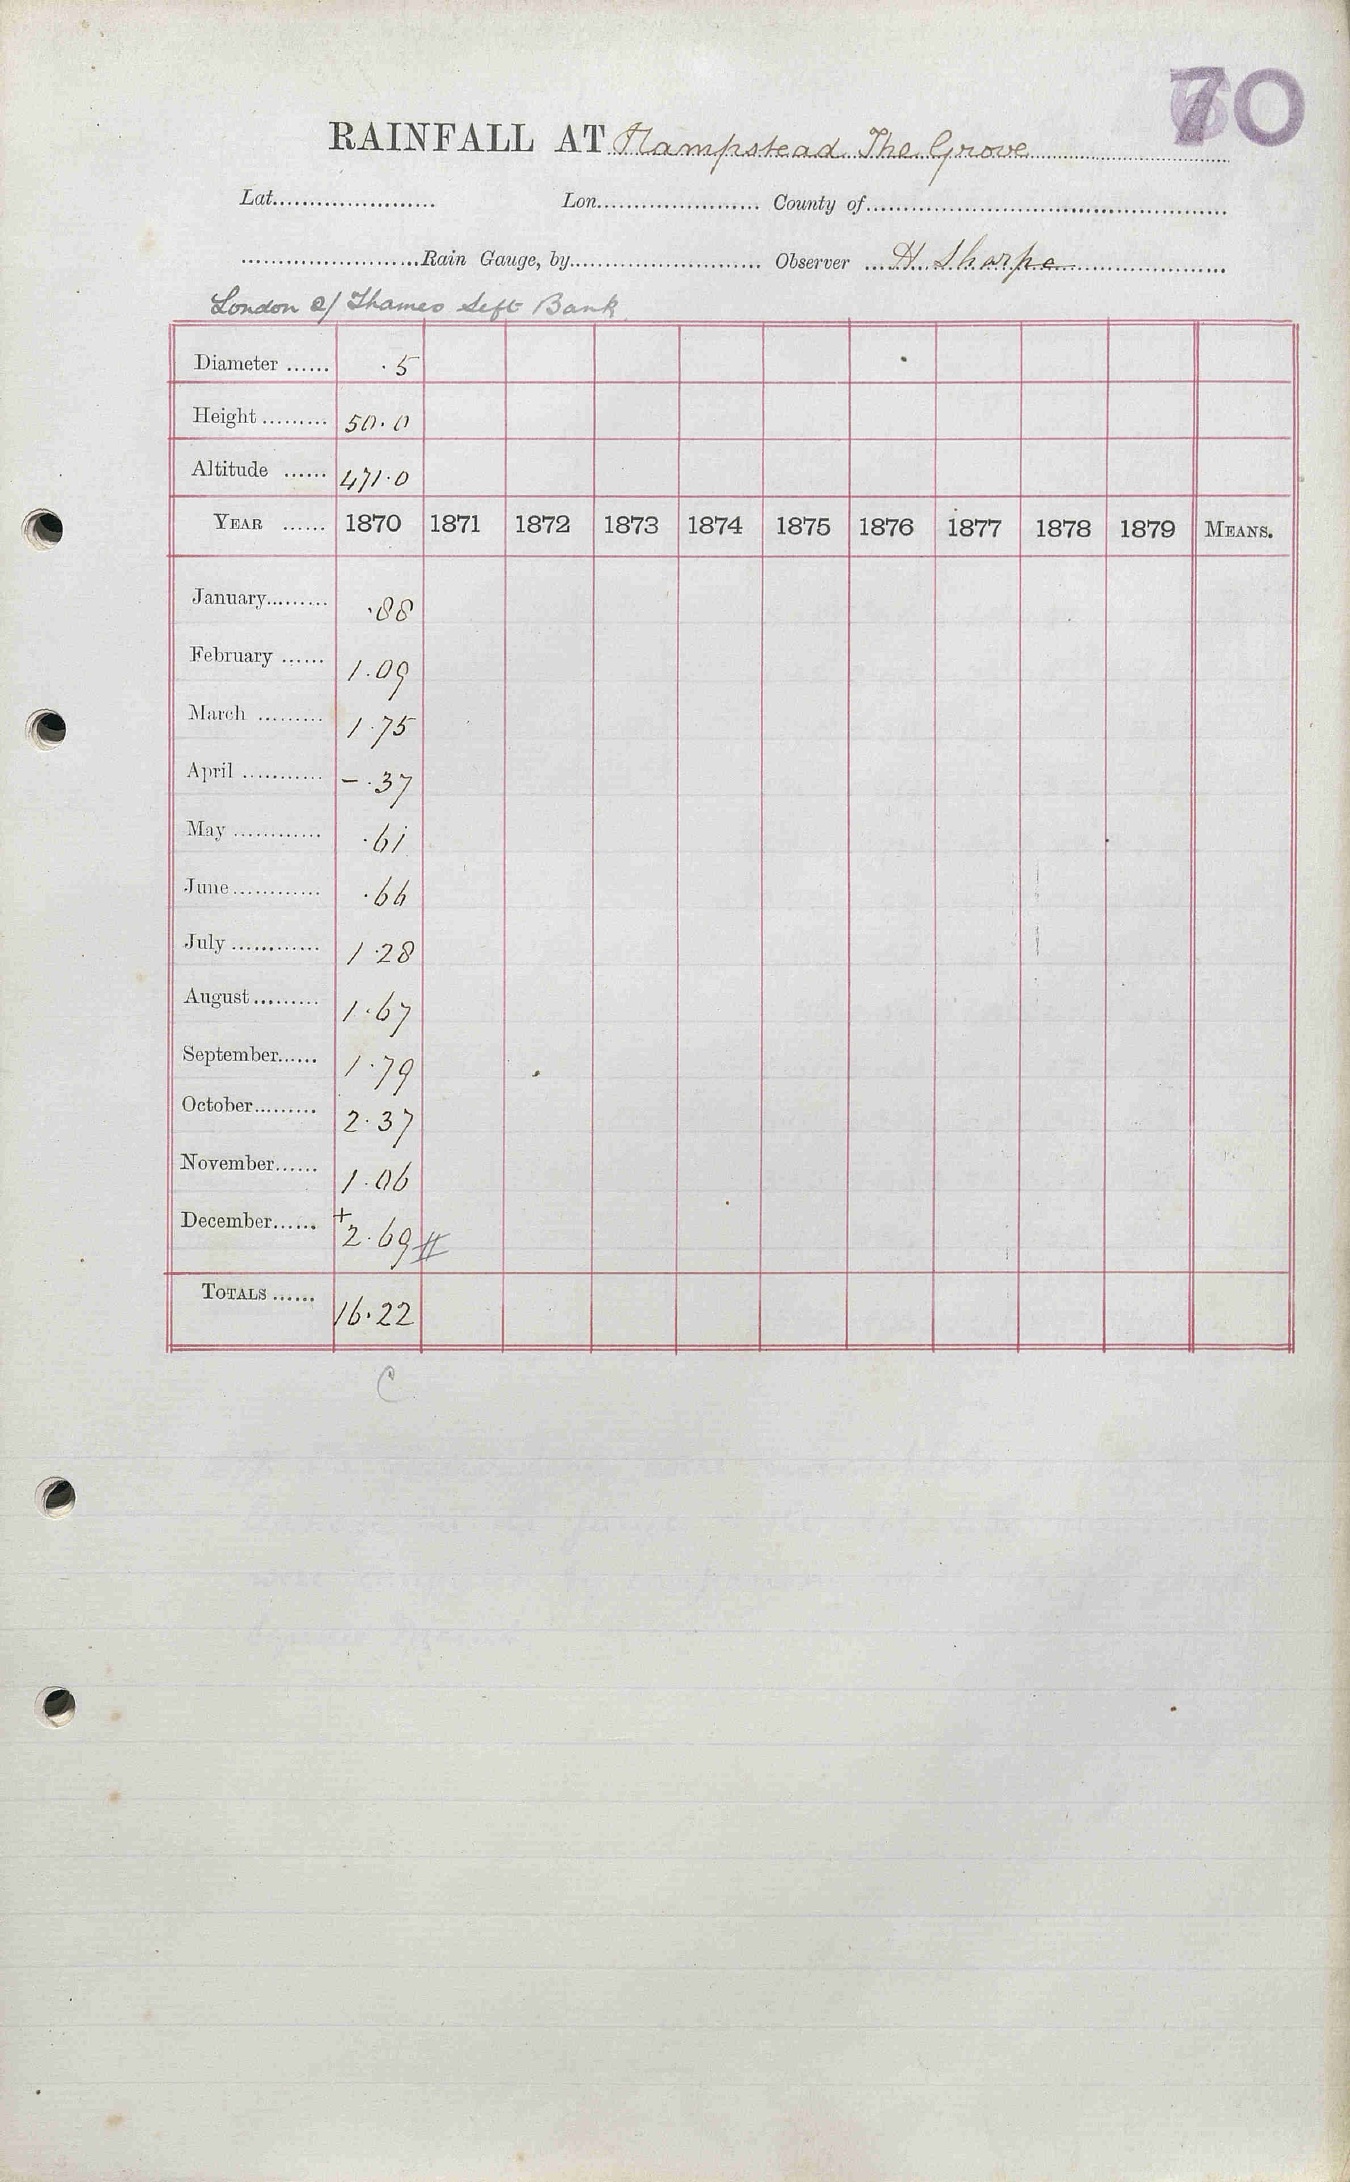 70
RAINFALL AT Hampstead The Grove
Lat...................... Lon...................... County of................................................
........................Rain Gauge, by.......................... Observer ....H. Sharpe....................
London 2/ Thames Left Bank
Diameter ...... .5
Height ......... 50.0
Altitude ...... 471.0
YEAR ...... 1870 1871 1872 1873 1874 1875 1876 1877 1878 1879 MEANS.
January......... .88
February ...... 1.09
March ......... 1.75
April ........... – .37
May ............ .61
June............ .66
July ............ 1.28
August......... 1.67
September...... 1.79
October......... 2.37
November...... 1.06
December...... + 2.69 #
TOTALS ...... 16.22
C